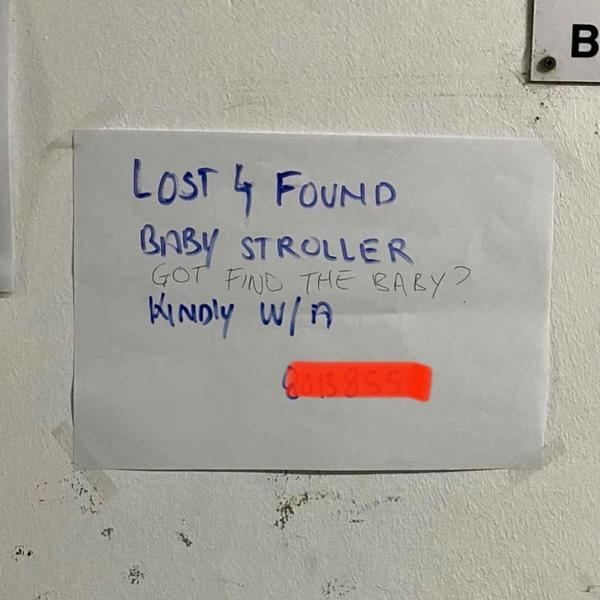 LOST & FOUND
BABY STROLLER
GOT FIND THE BABY?
KINDLY W/A
B